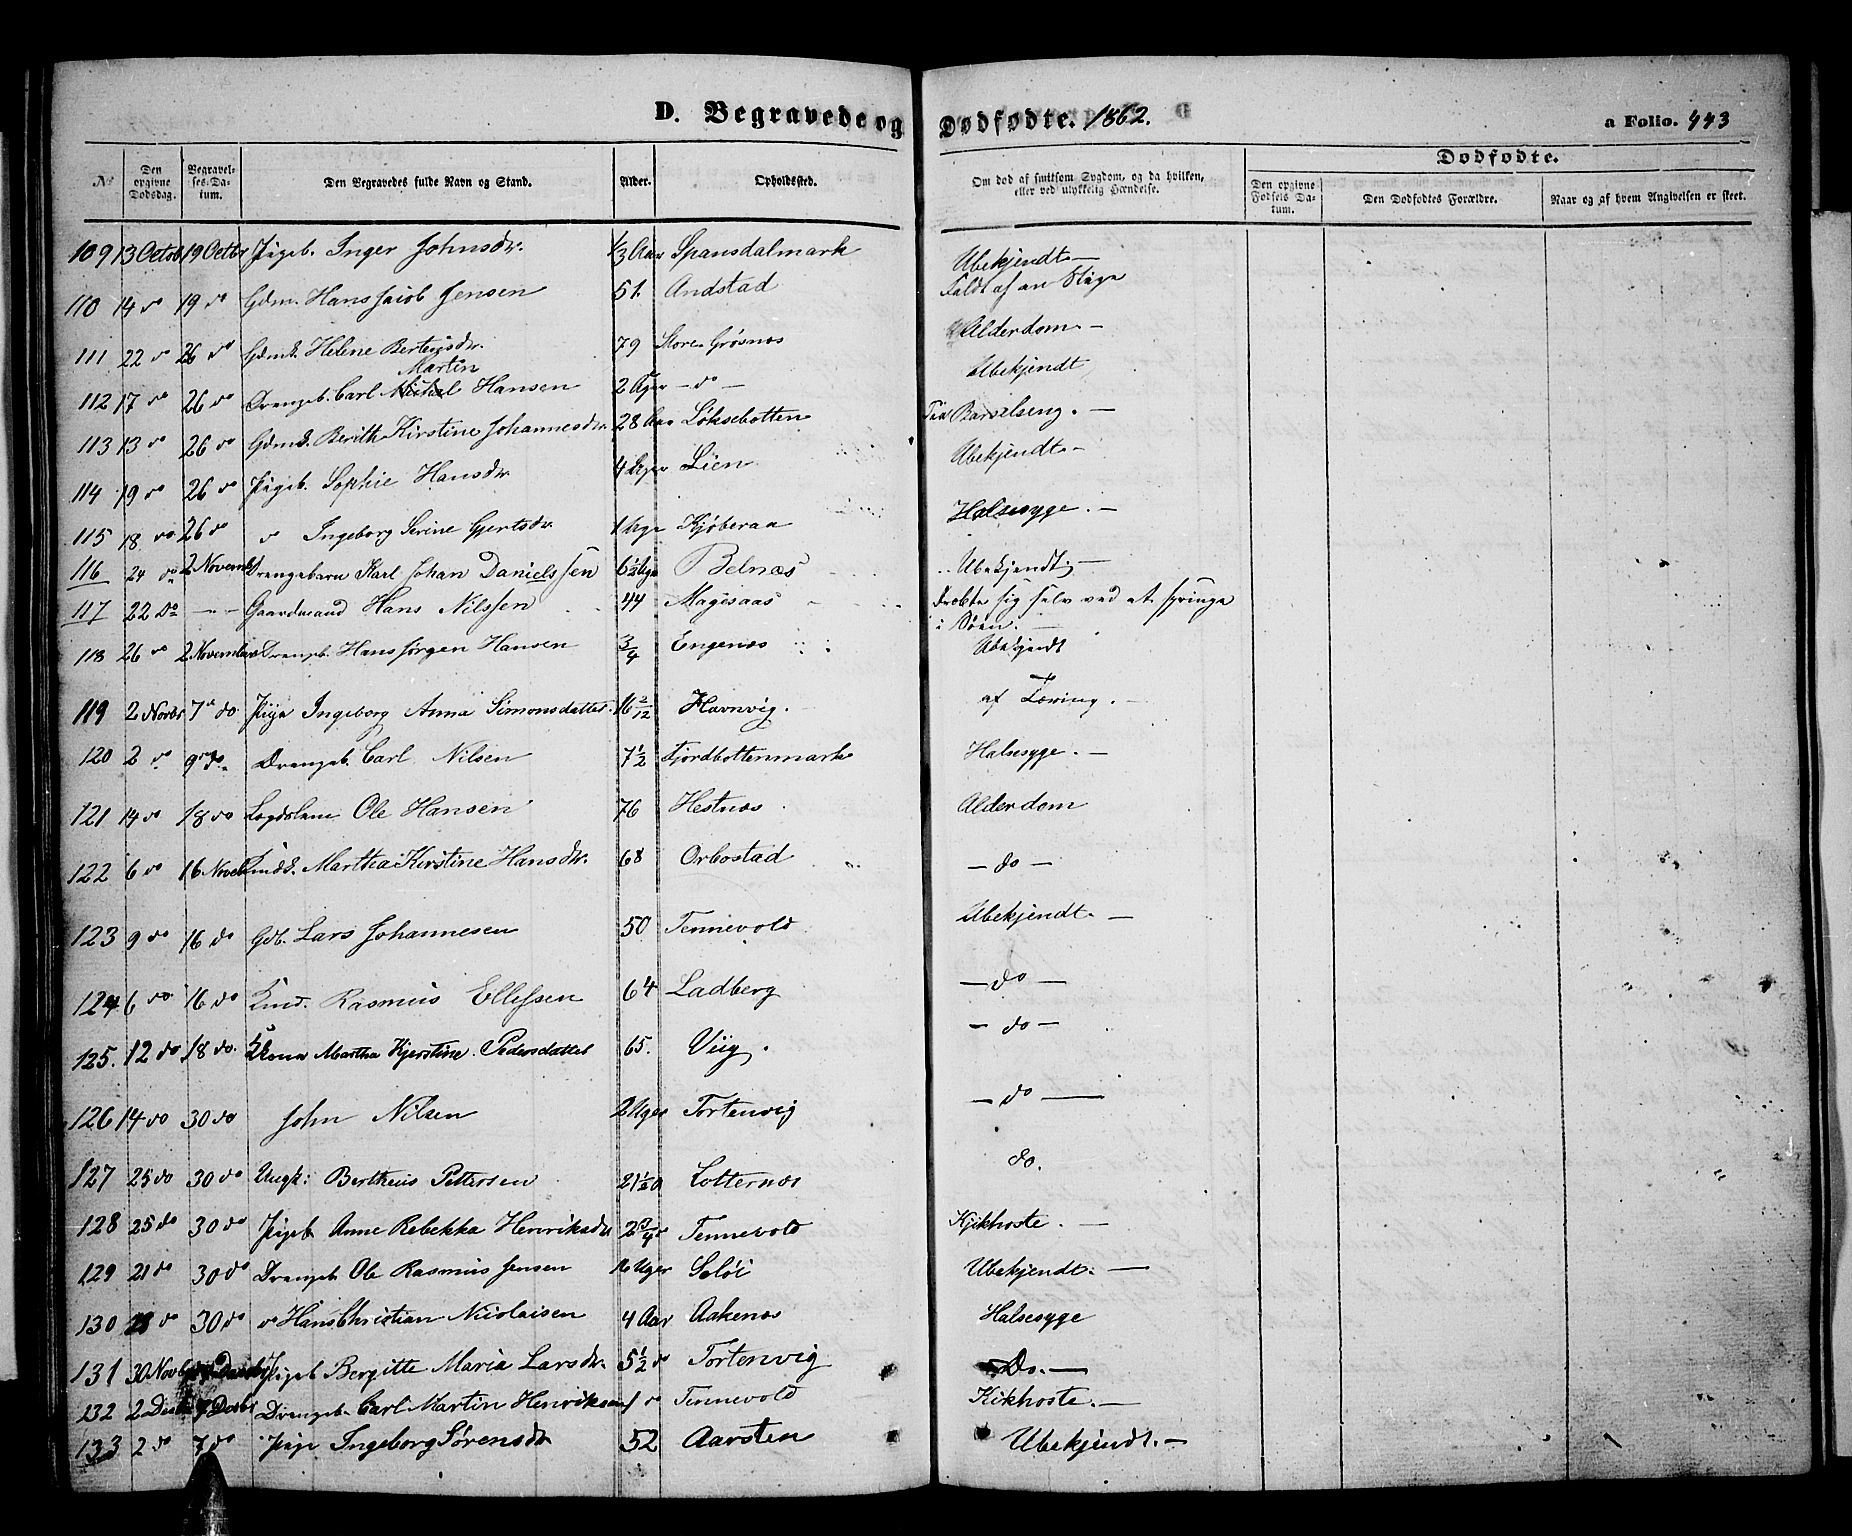 D. Begravede og Dødfødte. 1862. a Folio. 443
No Den opgivne Dødsdag. Begravelses-Datum. Den Begravedes fulde Navn og Stand. Alder. Opholdssted. Om død af smitsom Sygdom, og da hvilken, eller ved ulykkelig Hændelse. Dødfødte.
Den opgivne Fødsels Datum. Den Dødfødtes Forældre. Naar og af hvem Angivelsen er skeet.
109 13 Octob 19 Octbr Pigeb. Inger Johnsdr. 1/3 Aar Spansdalmark Ubekjendt
110 14 do 19 do Gdm. Hans Jacob Jensen 51. Andstad Faldt af en Stige
111 22 do 26 do Gdmk. Helene Berteusdr. 79 Store Grøsnæs Alderdom.
Martin
112 17 do 26 do Drengeb. Carl Hansen 2 Uger do Ubekjendt
113 13 do 26 do Gdmk. Berith Kirstine Johannesdr. 28 Aar Løksebotten Barselseng.
114 19 do 26 do Pigeb. Sophie Hansdr 4 Uger Lien Ubekjendt
115 18 do 26 do do Ingeborg Serine Gjertsdr. 1 Uge Kjøberaa Halsesyge.
116 24 do 2 Novembr Drengebarn Karl Johan Danielssen 6 1/2 Uge Belnæs Ubekjendt
117 22 Do - - Gaardmand Hans Nilssen 44 Magesaas Dræbte sig selv ved at springe
i Søen.
118 26 do 2 November Drengeb. Hans Jørgen Hansen 3/4 Engenæs Ubekjendt
119 2 Novbr 7 do Pige Ingeborg Anna Simonsdatter 16 2/12 Havnvig. af Tæring.
120 2 do 9 do Drengeb. Carl Nilsen 7 1/2 Fjordbottenmark Halsesyge.
121 14 do 18 do Lægdslem Ole Hansen 76 Hestnæs Alderdom
122 6 do 16 Novb Martha Kirstine Hansdr. 68 Orbostad do
123 9 do 16 do Lars Johannesen 50 Tennevold Ubekjendt.
124 6 do 16 do Rasmus Ellefsen 64 Ladberg do
125. 12 do 18 do. Kona Martha Kjerstine Pedersdatter 65. Viig. do
126 14 do 30 do John Nilsen 2 Uger Tortenvig do
127 25 do 30 do Ungk: Bertheus Pettersen 21 1/2 Lotternæs do.
128 25 do 30 do Pigeb Anne Rebekka Henriksdr 2 3/4 Tennevold Kjikhoste.
129 21 do 30 do Drengeb. Ole Rasmus Jensen 16 Uger Seløi Ubekjendt.
130 do 30 do do Hans Christian Nicolaisen 4 Aar Aakenæs Halsesyge
131 30 Novb Pigeb Bergitte Maria Larsdr. 5 1/2 do Tortenvig Do.
132 2 Decbr 7 Decbr Drengeb. Carl Martin Henriksen 1 do Tennevold Kikhoste.
133 2 do 7 do Pige Ingeborg Sørensdr 52 Aarsten Ubekjendt.